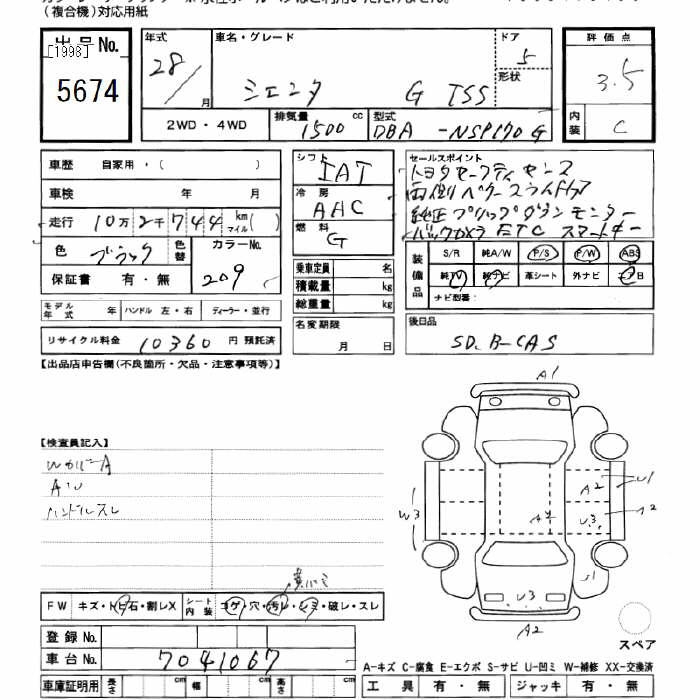 (複合機)対応用紙
出品No. [1998] 5674
年式 28/ 月
車名・グレード シエンタ G TSS
ドア 5
形状
評価点 3.5
内装 C
2WD・4WD
排気量 1500 cc
型式 DBA -NSP170G
車歴 自家用・( )
車検 年 月
走行 10万2千744 km マイル( )
色 ブラック 色替
カラーNo. 209
保証書 有・無
モデル年式 年 ハンドル 左・右 ディーラー・並行
リサイクル料金 10360 円 預託済
シフト IAT
冷房 AAC
燃料 G
乗車定員 名
積載量 kg
総重量 kg
名変期限
月 日
セールスポイント
トヨタセーフティセンス
両側パワースライドドア
純正フリップダウンモニター
バックカメラ ETC スマートキー
装備品 S/R 純A/W P/S P/W ABS
純TV 純ナビ 革シート 外ナビ エアB
ナビ型番:
後日品
SD、B-CAS
【出品店申告欄(不良箇所・欠品・注意事項等)】
【検査員記入】
WカバーA
AU
ハンドルスレ
A1
W3
A2 U1
A2
U3
U1
U3
A2
黄バミ
FW キズ・トビ石・割レX シート内装 コゲ・穴・汚レ・シミ・破レ・スレ
登録No.
車台No. 7041067
車庫証明用 長さ cm 幅 cm 高さ cm
スペア
A-キズ C-腐食 E-エクボ S-サビ U-凹ミ W-補修 XX-交換済
工具 有・無 ジャッキ 有・無